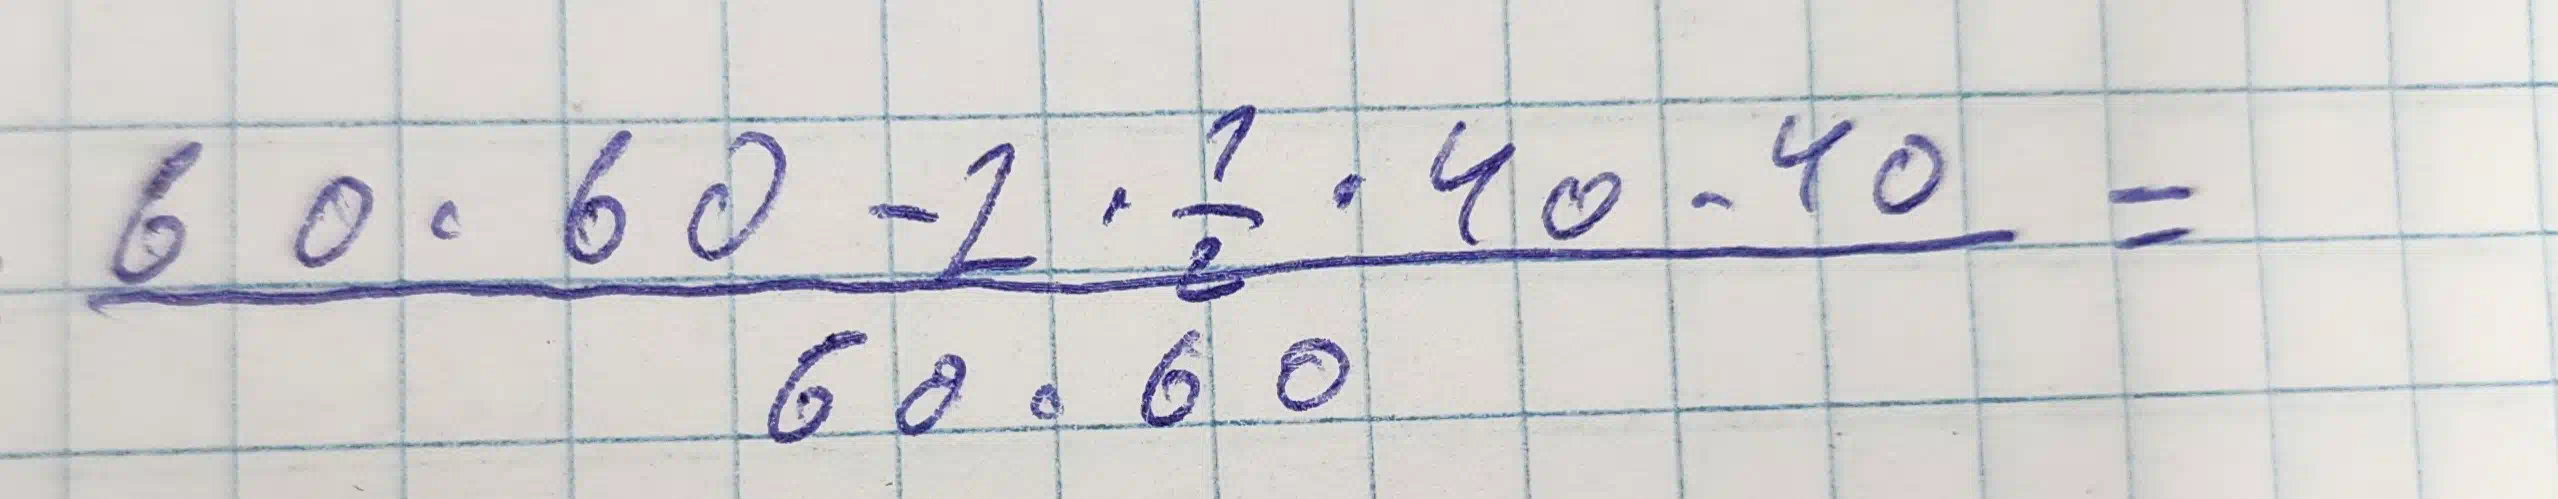 60 · 60 - 2 · 1/2 · 40 · 40 =
60 · 60